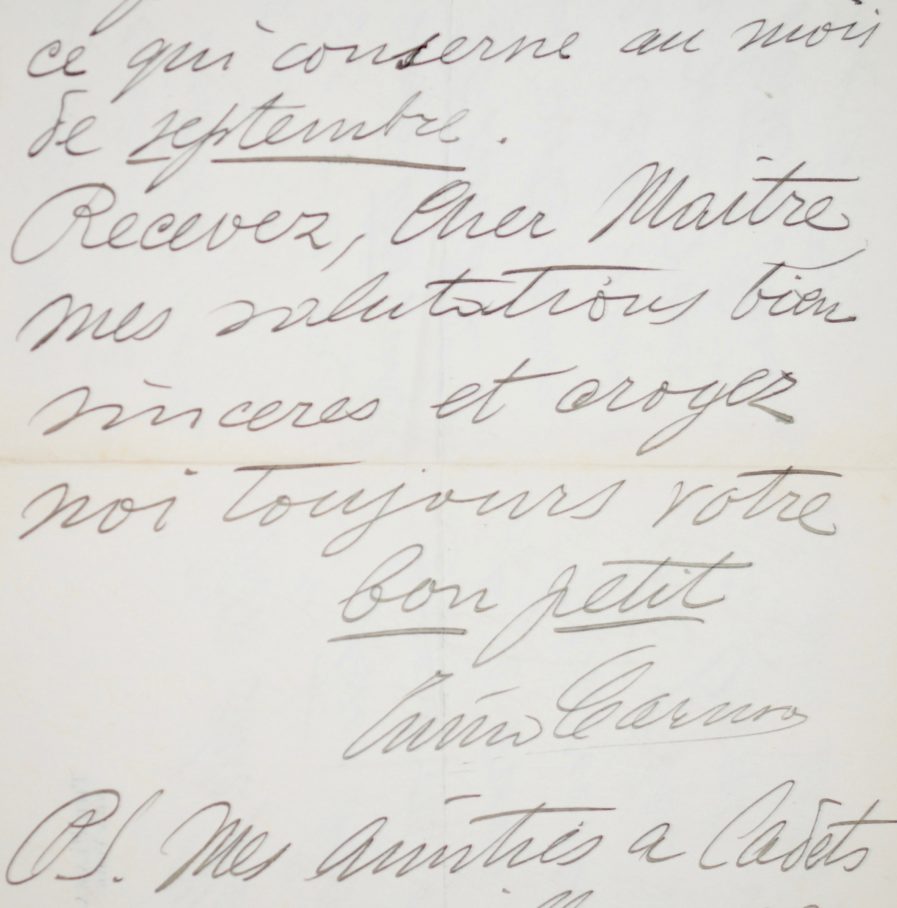 ce qui conserne au mois
de septembre.
Recevez, Cher Maitre
mes salutations bien
sinceres et croyez
moi toujours votre
bon petit
Enrico Caruso
PS. Mes amitiés a Cadets